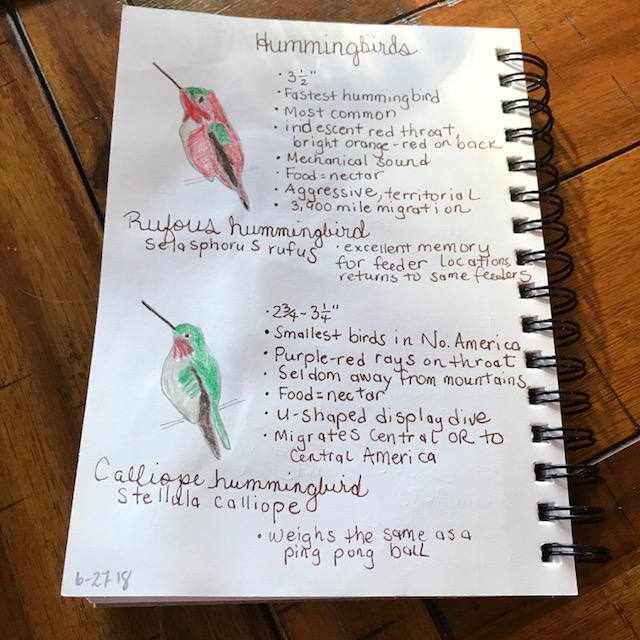 Hummingbirds
• 3½"
• Fastest hummingbird
• Most common
• iridescent red throat,
bright orange-red on back
• Mechanical sound
• Food = nectar
• Aggressive, territorial
• 3,900 mile migration
Rufous hummingbird
Selasphorus rufus
• excellent memory
for feeder locations,
returns to same feeders
• 2¾ - 3¼"
• Smallest birds in No. America
• Purple-red rays on throat
• Seldom away from mountains
• Food = nectar
• U-shaped display dive
• Migrates Central OR to
Central America
Calliope hummingbird
Stellula calliope
• Weighs the same as a
ping pong ball
6-27-18